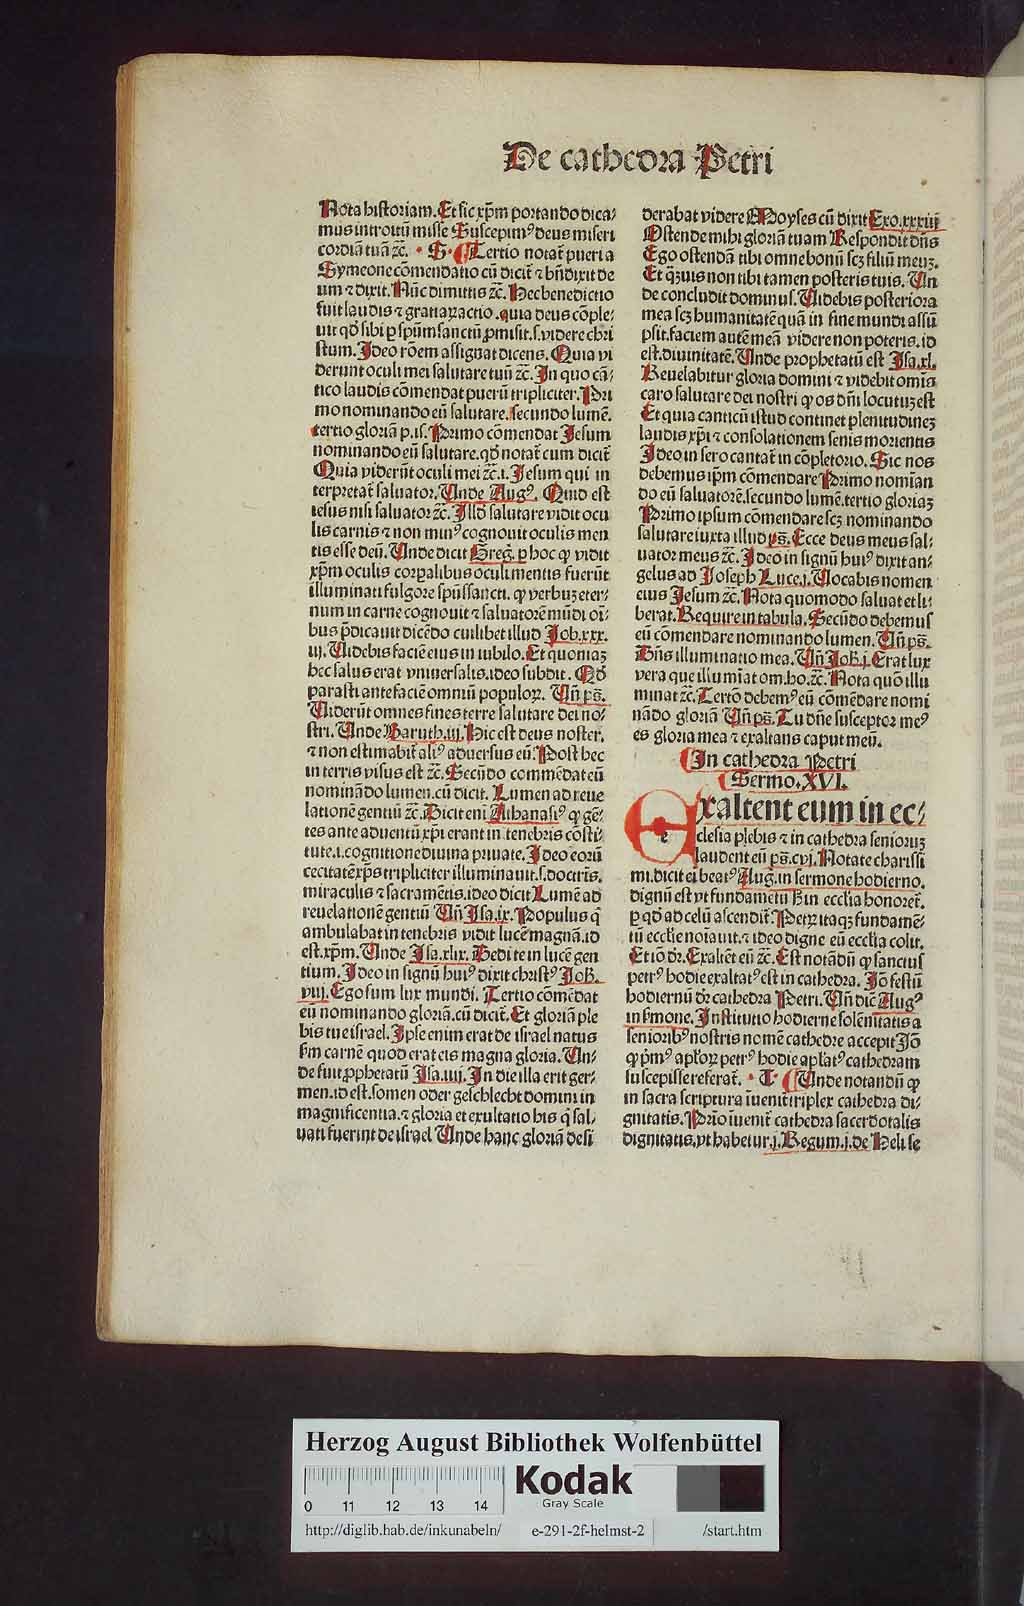 De cathedra Petri
Nota historiam. Et sic xp̄m portando dica⸗
mus introitū misse Suscepimꝰ deus miseri
cordiā tuā ꝛc̄. S. Tertio notat̄ pueri a
Symeone cōmendatio cū dicit̄ ⁊ bn̄dixit de
um ⁊ dixit. Nūc dimittis ꝛc̄. Hec benedictio
fuit laudis ⁊ gratiaꝝ actio. quia deus cōple⸗
uit qd̓ sibi ꝑ spūm sanctū ꝓmisit. s. videre chri
stum. Ideo rōem assignat dicens. Quia vi
derunt oculi mei salutare tuū ꝛc̄. In quo cā⸗
tico laudis cōmendat puerū tripliciter. Pri
mo nominando eū salutare. secundo lumē.
tertio gloriā p. is. Primo cōmendat Jesum
nominando eū salutare. qd̓ notat̄ cum dicit̄
Quia viderūt oculi mei ꝛc̄. i. Jesum qui in
terpretat̄ saluator. Unde Augꝰ. Quid est
iesus nisi saluator ꝛc̄. Illd̓ salutare vidit ocu
lis carnis ⁊ non minꝰ cognouit oculis men
tis esse deū. Unde dicit Greg̓. p hoc ꝙ vidit
xp̄m oculis corpalibus oculi mentis fuerūt
illuminati fulgore spūssancti. ꝙ verbuꝫ eter⸗
num in carne cognouit ⁊ saluatorē mūdi oī⸗
bus p̄dicauit dicēdo cuilibet illud Job. xxx.
iij. Uidebis faciē eius in iubilo. Et quoniaꝫ
hec salus erat vniuersalis. ideo subdit. Qd̓
parasti ante faciē omniū populoꝝ. Un̄ ps̄.
Uiderūt omnes fines terre salutare dei no⸗
stri. Unde Baruth. iij. Hic est deus noster.
⁊ non estimabit̄ aliꝰ aduersus eū. Post hec
in terris visus est ꝛc̄. Secūdo commēdat eū
nominādo lumen. cū dicit. Lumen ad reue
lationē gentiū ꝛc̄. Dicit eni Athanasiꝰ ꝙ gē⸗
tes ante aduentū xp̄i erant in tenebris cōsti⸗
tute. i. cognitione diuina priuate. Ideo eorū
cecitatē xp̄s tripliciter illuminauit. s. doctris.
miraculis ⁊ sacramētis. ideo dicit Lumē ad
reuelationē gentiū Un̄ Isa. ix. Populus q̄
ambulabat in tenebris vidit lucē magnā. id
est. xp̄m. Unde Isa. xlix. Dedi te in lucē gen
tium. Ideo in signū huiꝰ dixit christꝰ Joh̄.
viij. Ego sum lux mundi. Tertio cōmēdat
eū nominando gloriā. cū dicit̄. Et gloriā ple
bis tue israel. Ipse enim erat de israel natus
sm̄ carnē quod erat eis magna gloria. Un⸗
de fuit ꝓphetatū Isa. iiij. In die illa erit ger⸗
men. id est. somen oder geschlecht domini in
magnificentia. ⁊ gloria et exultatio his q̄ sal⸗
uati fuerint de israel Unde hanc gloriā desi
derabat videre Moyses cū dixit Exo. xxxiij
Ostende mihi gloriā tuam Respondit dn̄s
Ego ostendā tibi omne bonū scꝫ filiū meuꝫ.
Et q̄uis non tibi tamen posteris tuis. Un
de concludit dominus. Uidebis posteriora
mea scꝫ humanitatē quā in fine mundi assū
psit. faciem autē meā videre non poteris. id
est. diuinitatē. Unde prophetatū est Isa. xl.
Reuelabitur gloria domini ⁊ videbit omīs
caro salutare dei nostri ꝙ os dn̄i locutuꝫ est
Et quia canticū istud continet plenitudineꝫ
laudis xp̄i ⁊ consolationem senis morientis
Ideo in sero cantat̄ in cōpletorio. Sic nos
debemus ip̄m cōmendare Primo nomīan
do eū saluatorē. secundo lumē. tertio gloriaꝫ
Primo ipsum cōmendare scꝫ nominando
salutare iuxta illud ps̄. Ecce deus meus sal⸗
uator meus ꝛc̄. Ideo in signū huiꝰ dixit an⸗
gelus ad Joseph Luce. i. Uocabis nomen
eius Jesum ꝛc̄. Nota quomodo saluat et li⸗
berat. Require in tabula. Secūdo debemus
eū cōmendare nominando lumen. Un̄ ps̄.
Dn̄s illuminatio mea. Un̄ Joh̄. j. Erat lux
vera que illumiat om. ho. ꝛc̄. Nota quō illu
minat ꝛc̄. Tertō debemꝰ eū cōmēdare nomi
nādo gloriā Un̄ ps̄. Tu dn̄e susceptor meꝰ
es gloria mea ⁊ exaltans caput meū.
In cathedra Petri
Sermo. XVI.
Exaltent eum in ec⸗
clesia plebis ⁊ in cathedra senioruꝫ
laudent eū ps̄. cvj. Notate charissi
mi. dicit ei beatꝰ Aug̓. in sermone hodierno.
dignū est vt fundametū h̄ in ecclia honoret̄.
p qd̓ ad celū ascendit̄. Petꝝ itaqꝫ fundamē⸗
tū ecclie noīauit. ⁊ ideo digne eū ecclia colit.
Et iō dr̄. Exaltēt eū ꝛc̄. Est notādū ꝙ sanctus
petrꝰ hodie exaltatꝰ est in cathedra. Iō festū
hodiernū dr̄ cathedra Petri. Un̄ dic̄ Augꝰ
in sm̄one. Institutio hodierne solēnitatis a
seniorībꝰ nostris nomē cathedre accepit Iō
ꝙ p̄mꝰ apl̓oꝝ petrꝰ hodie apl̓atꝰ cathedram
suscepisse referat̄. T. Unde notandū ꝙ
in sacra scriptura īuenit̄ triplex cathedra di⸗
gnitatis. Prīo īuenit̄ cathedra sacerdotalis
dignitatis. vt habetur. j. Regum. j. de Heli se
Herzog August Bibliothek Wolfenbüttel
0 11 12 13 14
Kodak
Gray Scale
http://diglib.hab.de/inkunabeln/ e-291-2f-helmst-2 /start.htm